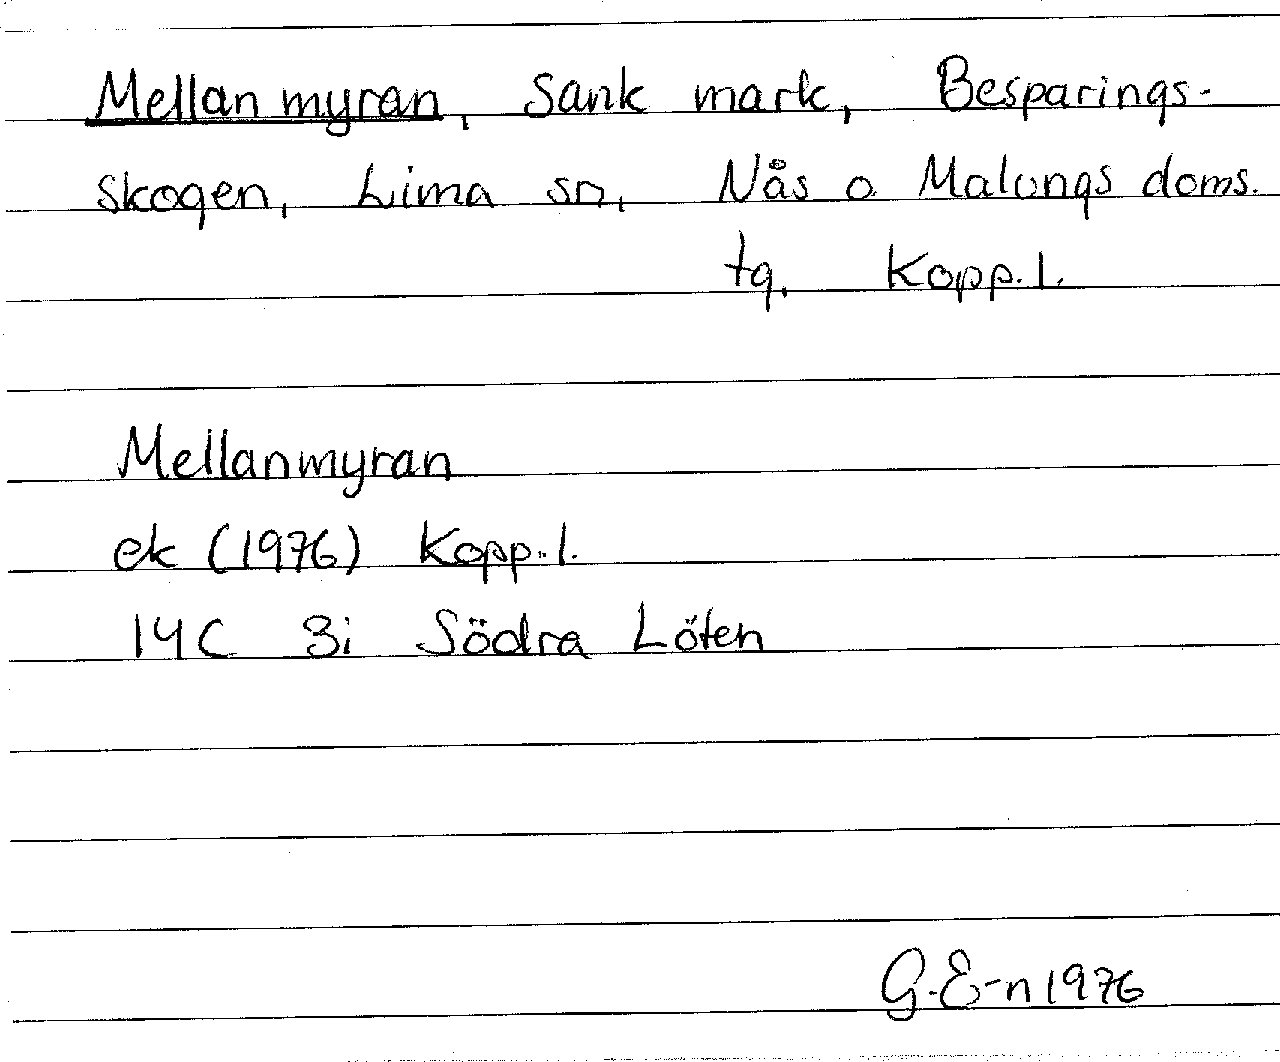 Mellanmyran, Sank mark, Besparings-
skogen, Lima sn, Nås o Malungs doms.
tg, Kopp.l.
Mellanmyran
ek (1976) Kopp.l.
14C 3i Södra Löten
G.E-n 1976